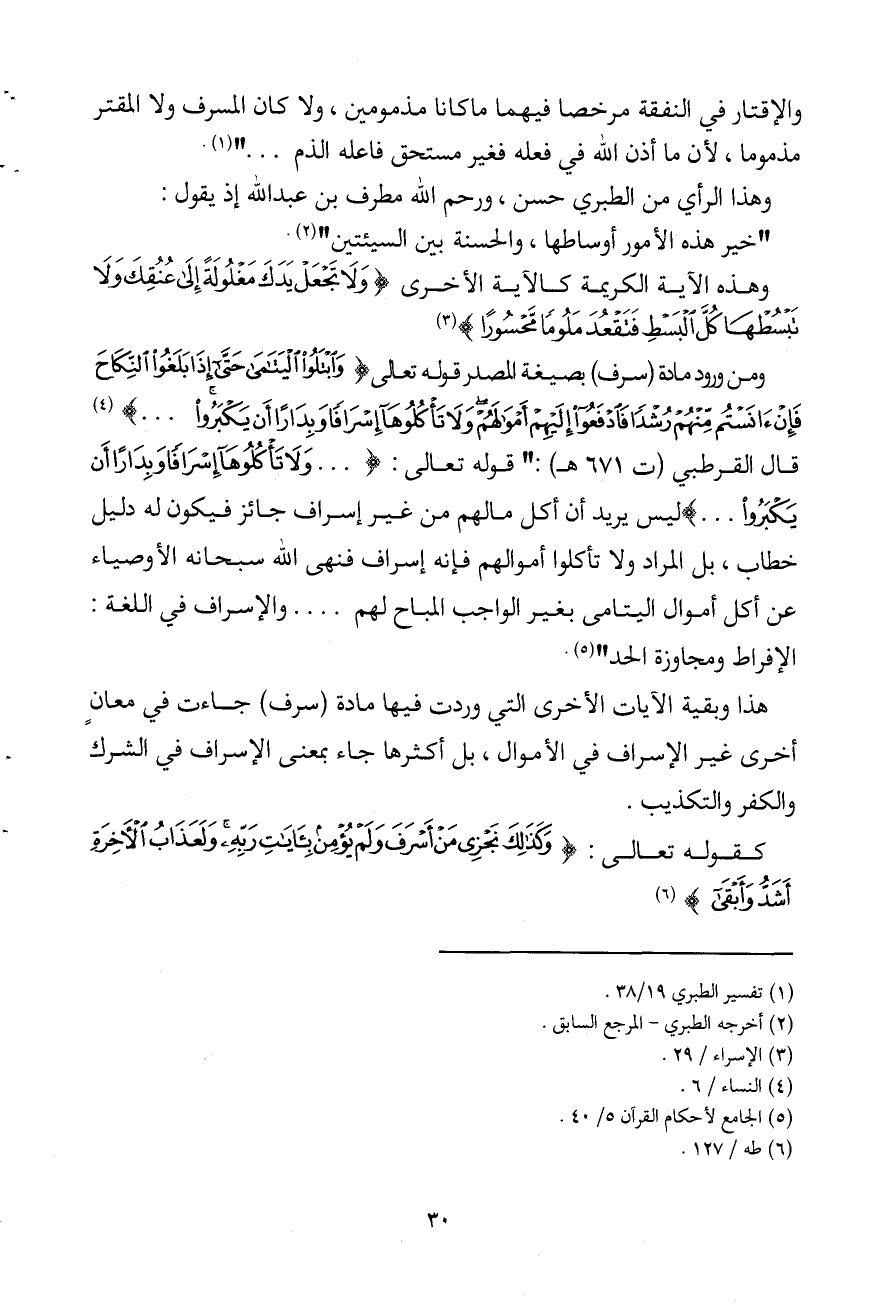 والإقتار في النفقة مرخصا فيهما ماكانا مذمومين ، ولا كان المسرف ولا المقتر
مذموما ، لأن ما أذن الله في فعله فغير مستحق فاعله الذم ..."(١).
وهذا الرأي من الطبري حسن ، ورحم الله مطرف بن عبدالله إذ يقول :
"خير هذه الأمور أوساطها ، والحسنة بين السيئتين"(٢).
وهذه الآية الكريمة كالآية الأخرى ﴿ وَلَا تَجْعَلْ يَدَكَ مَغْلُولَةً إِلَىٰ عُنُقِكَ وَلَا
تَبْسُطْهَا كُلَّ ٱلْبَسْطِ فَتَقْعُدَ مَلُومًا مَّحْسُورًا ﴾(٣)
ومن ورود مادة (سرف) بصيغة المصدر قوله تعالى ﴿ وَٱبْتَلُوا۟ ٱلْيَتَـٰمَىٰ حَتَّىٰٓ إِذَا بَلَغُوا۟ ٱلنِّكَاحَ
فَإِنْ ءَانَسْتُم مِّنْهُمْ رُشْدًا فَٱدْفَعُوٓا۟ إِلَيْهِمْ أَمْوَٰلَهُمْ ۖ وَلَا تَأْكُلُوهَآ إِسْرَافًا وَبِدَارًا أَن يَكْبَرُوا۟ ۚ ...﴾(٤)
قال القرطبي (ت ٦٧١ هـ) :" قوله تعالى : ﴿ ... وَلَا تَأْكُلُوهَآ إِسْرَافًا وَبِدَارًا أَن
يَكْبَرُوا۟ ...﴾ليس يريد أن أكل مالهم من غير إسراف جائز فيكون له دليل
خطاب ، بل المراد ولا تأكلوا أموالهم فإنه إسراف فنهى الله سبحانه الأوصياء
عن أكل أموال اليتامى بغير الواجب المباح لهم .... والإسراف في اللغة :
الإفراط ومجاوزة الحد"(٥).
هذا وبقية الآيات الأخرى التي وردت فيها مادة (سرف) جاءت في معانٍ
أخرى غير الإسراف في الأموال ، بل أكثرها جاء بمعنى الإسراف في الشرك
والكفر والتكذيب .
كقوله تعالى : ﴿ وَكَذَٰلِكَ نَجْزِى مَنْ أَسْرَفَ وَلَمْ يُؤْمِنۢ بِـَٔايَـٰتِ رَبِّهِۦ ۚ وَلَعَذَابُ ٱلْـَٔاخِرَةِ
أَشَدُّ وَأَبْقَىٰٓ ﴾ (٦)
(١) تفسير الطبري ٣٨/١٩ .
(٢) أخرجه الطبري – المرجع السابق .
(٣) الإسراء / ٢٩ .
(٤) النساء / ٦ .
(٥) الجامع لأحكام القرآن ٥/ ٤٠ .
(٦) طه / ١٢٧ .
٣٠